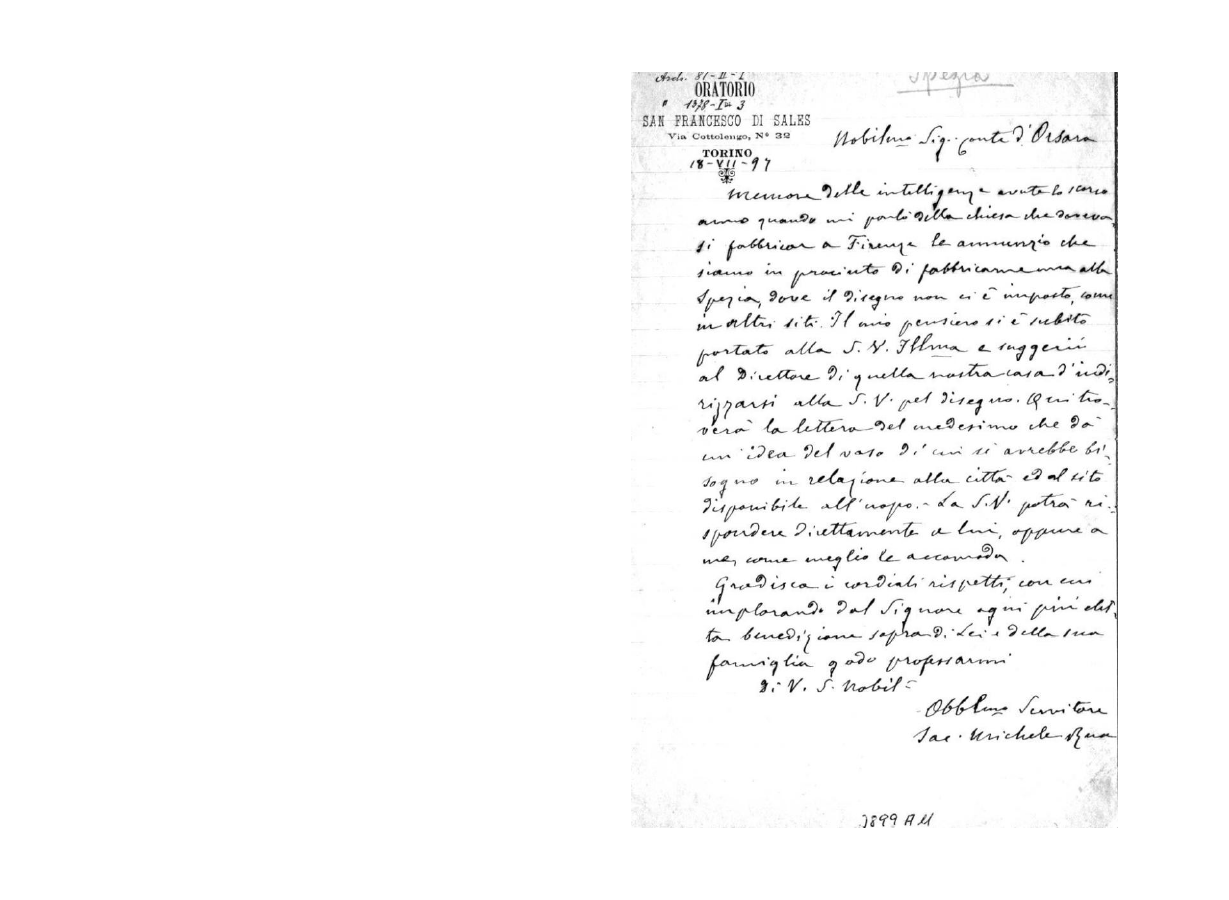 Arch. 81-II-1
Spezia
ORATORIO
" 1378-IV 3
SAN FRANCESCO DI SALES
Via Cottolengo, Nº 32
TORINO
18-VII-97
Nobilmo Sig. Conte d'Orsara
Memore delle intelligenze avute lo scorso
anno quando mi parlò della chiesa che doveva-
si fabbricar a Firenze le annunzio che
siamo in procinto di fabbricarne una alla
Spezia, dove il disegno non ci è imposto, come
in altri siti. Il mio pensiero si è subito
portato alla S. V. Illma e suggerii
al Direttore di quella nostra casa d'indi-
rizzarsi alla S. V. pel disegno. Qui tro-
verà la lettera del medesimo che dà
un'idea del vaso di cui si avrebbe bi-
sogno in relazione alla città ed al sito
disponibile all'uopo. - La S. V. potrà ri-
spondere direttamente a lui, oppure a
me, come meglio le accomoda.
Gradisca i cordiali rispetti, con cui
implorando dal Signore ogni più elet-
ta benedizione sopra di Lei e della sua
famiglia godo professarmi
Di V. S. Nobil.
Obblmo Servitore
Sac. Michele Rua
3899 AM